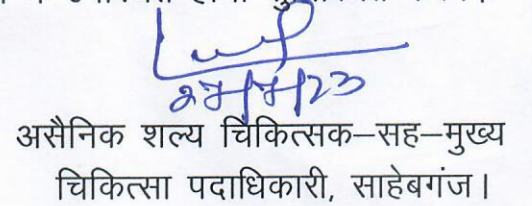 27/7/23
असैनिक शल्य चिकित्सक–सह–मुख्य
चिकित्सा पदाधिकारी, साहेबगंज।